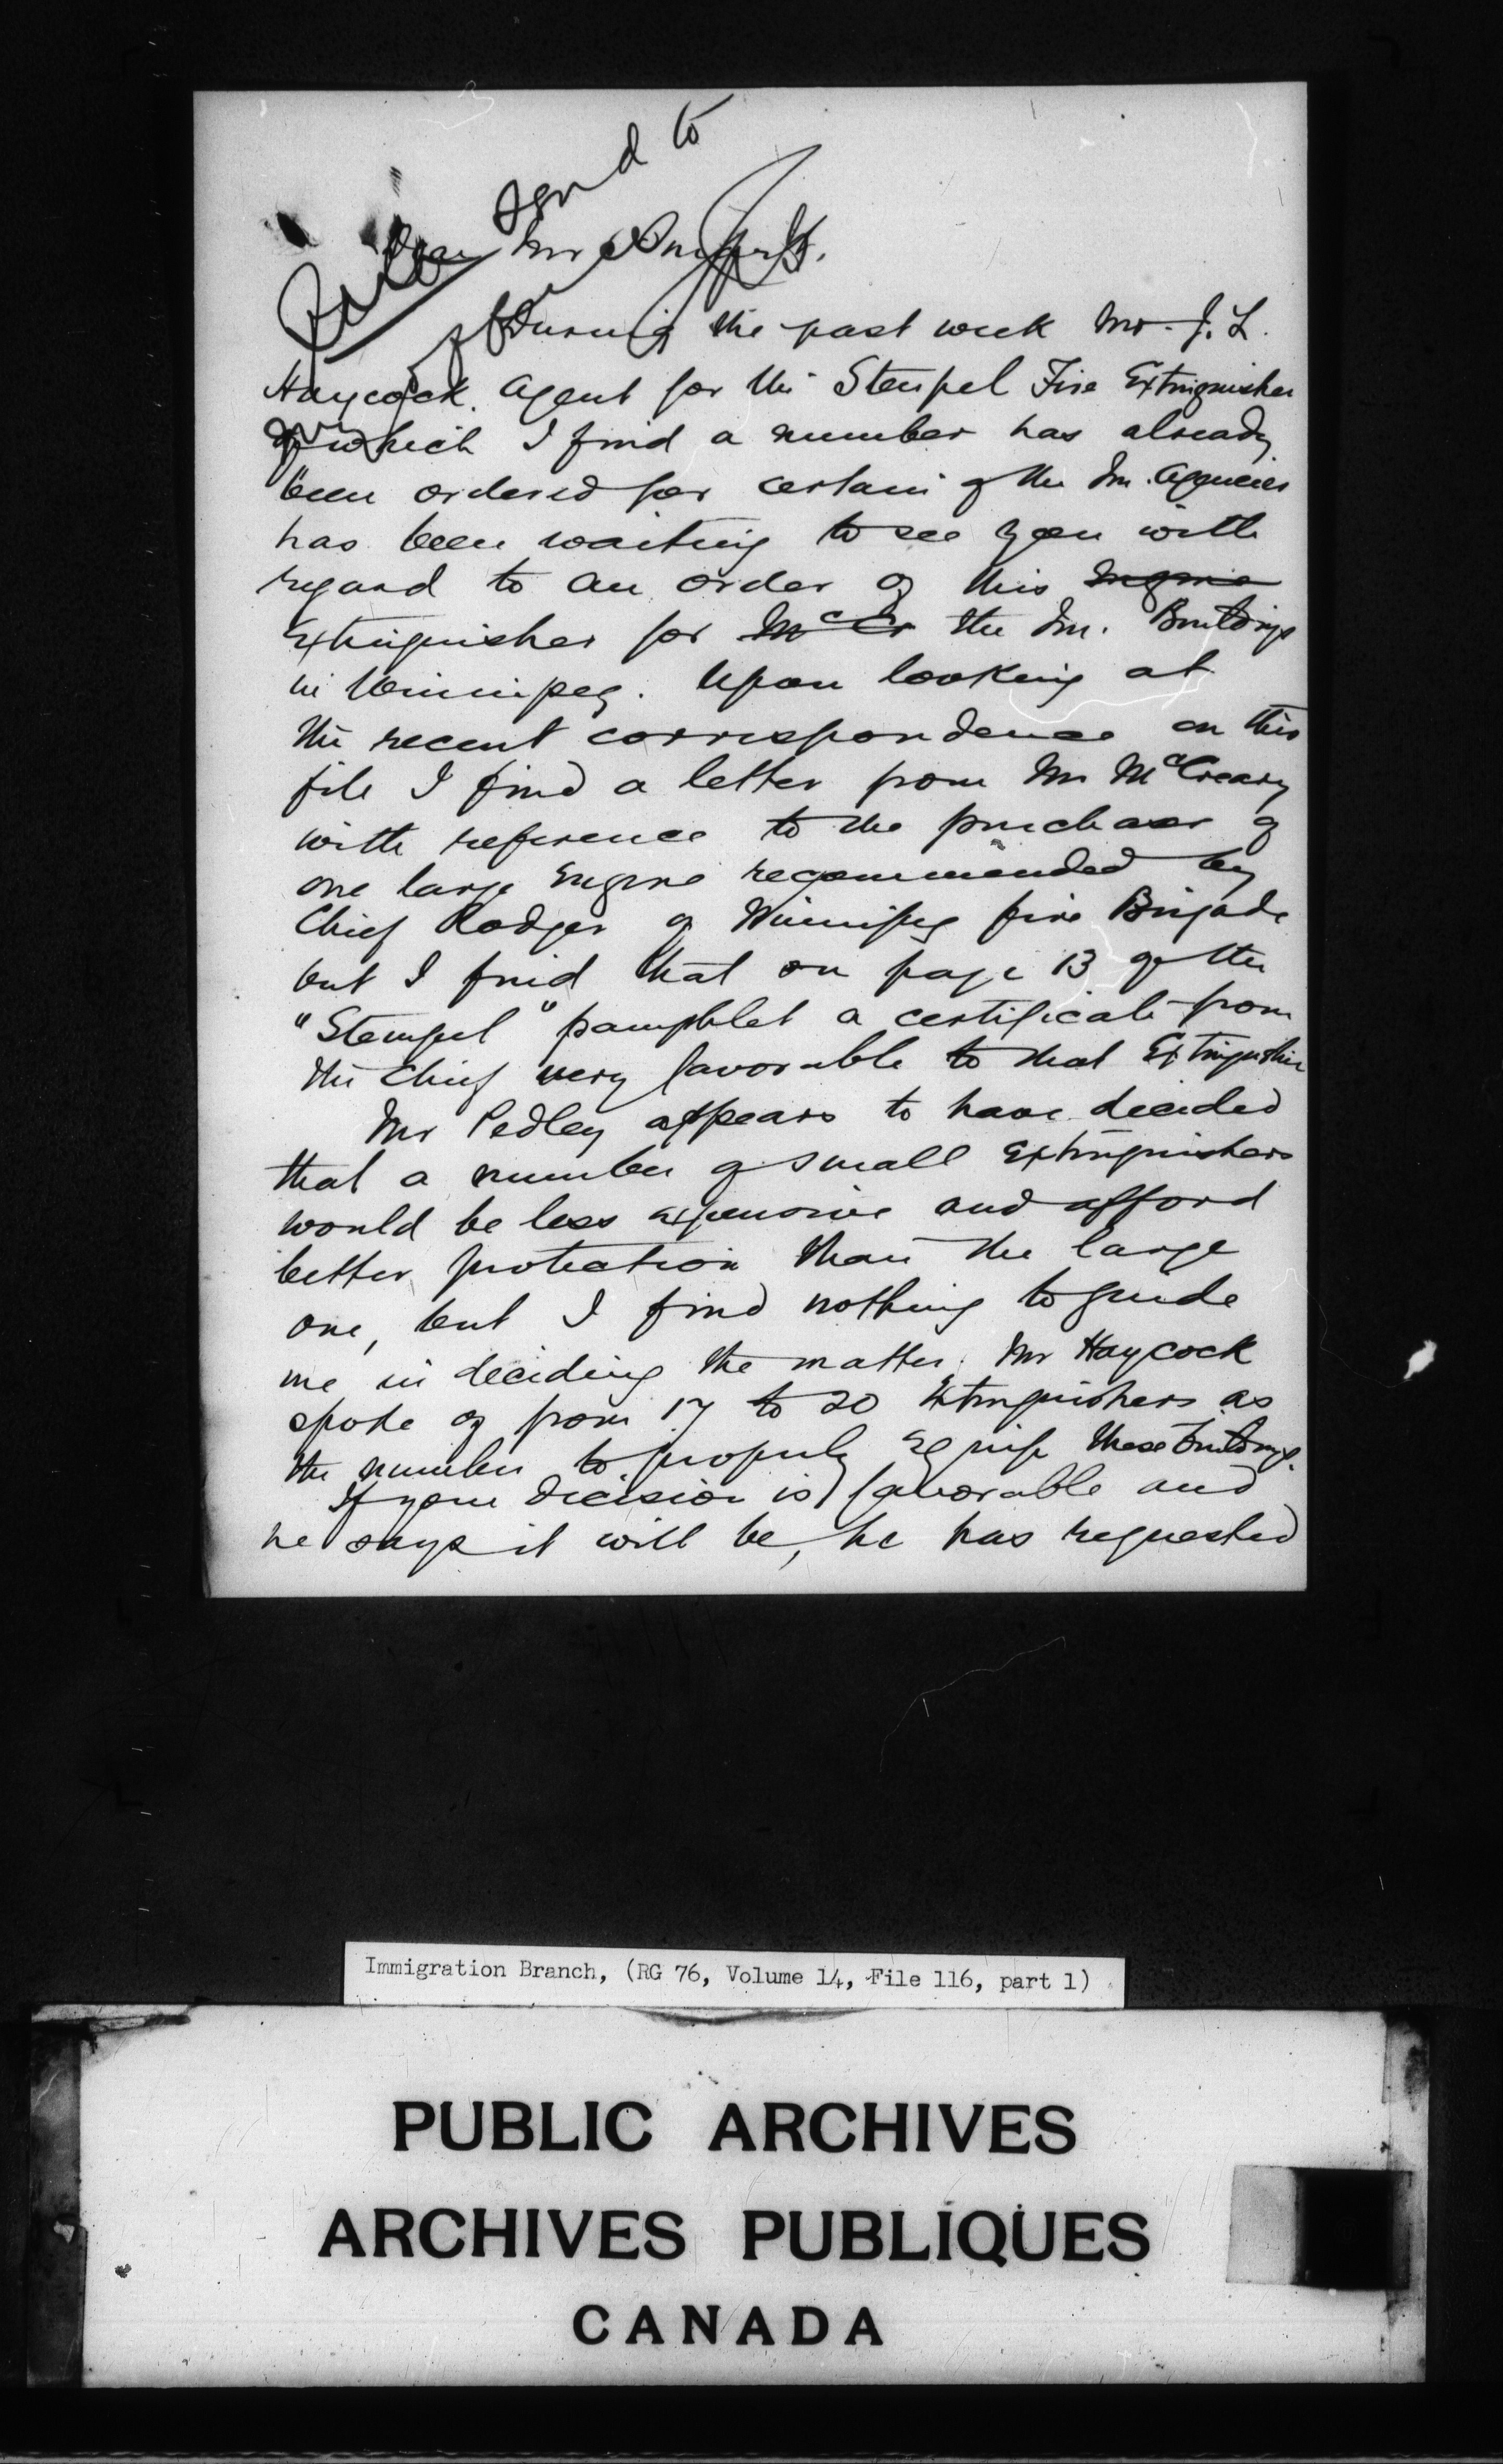 send to
Dear Mr
During the past week Mr. J. L.
Haycock. Agent for the Stempel Fire Extinguisher
of which I find a number has already
been ordered for certain of the Im. Agencies
has been waiting to see you with
regard to an order of this Engine
Extinguisher for McCr the Im. Buildings
in Winnipeg. Upon looking at
the recent correspondence on this
file I find a letter from Mr McCreary
with reference to the purchase of
one large Engine recommended by
Chief Rodger of Winnipeg fire Brigade
but I find that on page 13 of the
"Stempel" pamphlet a certificate from
the Chief very favorable to that Extinguisher
Mr Pedley appears to have decided
that a number of small Extinguishers
would be less expensive and afford
better protection than the large
one, but I find nothing to guide
me in deciding the matter. Mr Haycock
spoke of from 17 to 20 Extinguishers as
the number to properly Equip these buildings.
If your decision is favorable and
he says it will be, he has requested
Immigration Branch, (RG 76, Volume 14, File 116, part 1)
PUBLIC ARCHIVES
ARCHIVES PUBLIQUES
CANADA